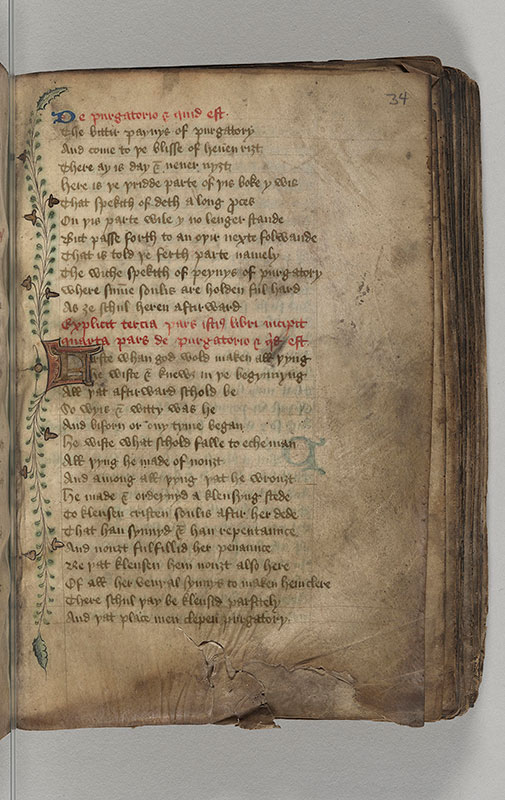 34
De purgatorio & quid est.
The bittir paynys of purgatory
And come to þe blisse of heuen riȝt
There ay is day & neuer nyȝt
here is þe þridde parte of þis boke y wis
That spekith of deth a long pces
On þis parte wile y no lenger stande
But passe forth to an oþir nexte folwande
That is told þe ferth parte namely
The wiche spekith of peynys of purgatory
where sume soulis are holden ful hard
As ȝe schul heren aftirward
Explicit tercia pars isti9 libri incipit
quarta pars de purgatorio & qd est
Firste whan god wold maken all þyng
He wiste & knewe in þe begynnyng
All þat aftirward schold be
So wyis & witty was he
And biforn or ony tyme began
He wiste what schold falle to eche man
All þyng he made of nouȝt
And among all þyng þat he wrouȝt
He made & ordeynyd a klensyng stede
To klensen cristen soulis aftir her dede
That han synnyd & han repentaunce
And nouȝt fulfillid her penaunce
Ne þat klensen hem nouȝt also here
Of all her venyal synnys to maken hem clere
There schul þay be klensid parfitely
And þat place men clepen purgatory.